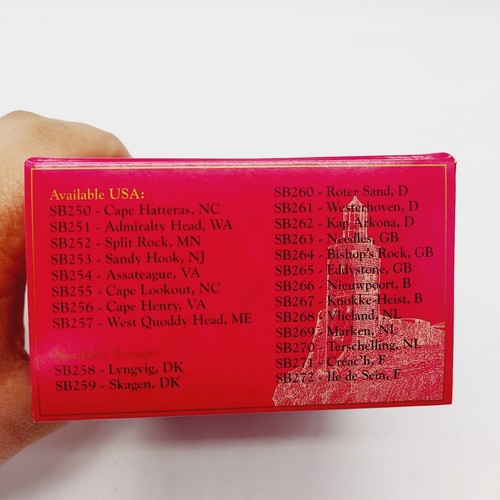 Available USA:
SB250 - Cape Hatteras, NC
SB251 - Admiralty Head, WA
SB252 - Split Rock, MN
SB253 - Sandy Hook, NJ
SB254 - Assateague, VA
SB255 - Cape Lookout, NC
SB256 - Cape Henry, VA
SB257 - West Quoddy Head, ME
Available Europe:
SB258 - Lyngvig, DK
SB259 - Skagen, DK
SB260 - Roter Sand, D
SB261 - Westerhoven, D
SB262 - Kap Arkona, D
SB263 - Needles, GB
SB264 - Bishop's Rock, GB
SB265 - Eddystone, GB
SB266 - Nieuwpoort, B
SB267 - Knokke-Heist, B
SB268 - Vlieland, NL
SB269 - Marken, NL
SB270 - Terschelling, NL
SB271 - Creac'h, F
SB272 - Ile de Sein, F